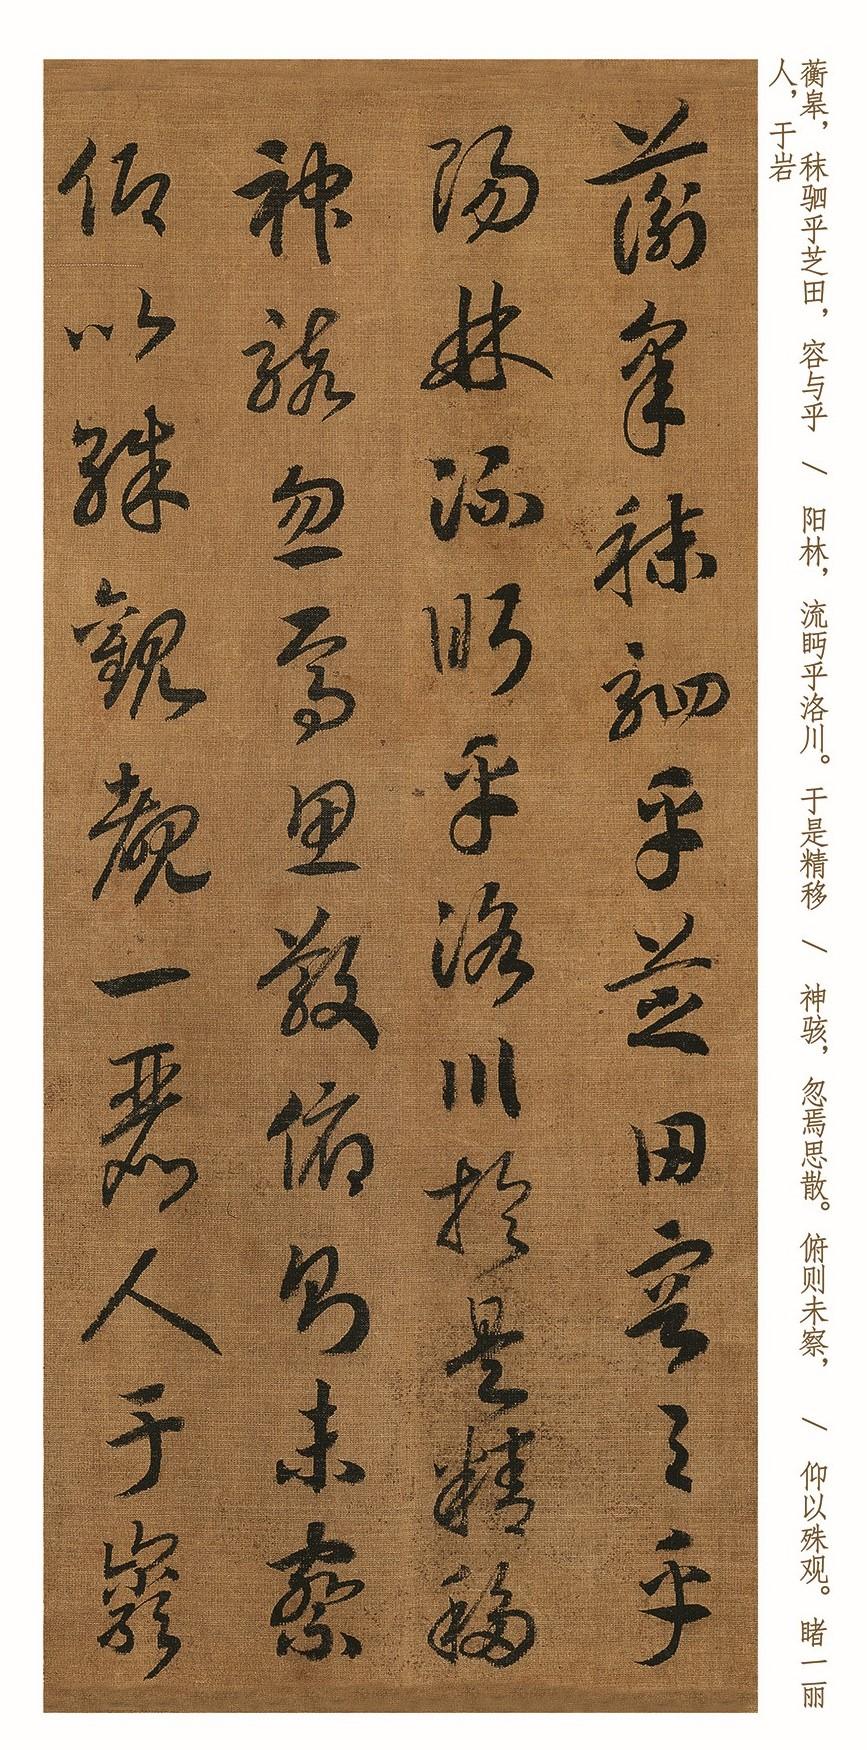 蘅皋，秣驷乎芝田，容与乎 / 阳林，流眄乎洛川。于是精移 / 神骇，忽焉思散。俯则未察， / 仰以殊观。睹一丽
人，于岩
蘅皋秣駟乎芝田容与乎
陽林流眄乎洛川於是精移
神駭忽焉思散俯則未察
仰以殊觀覩一麗人于巖